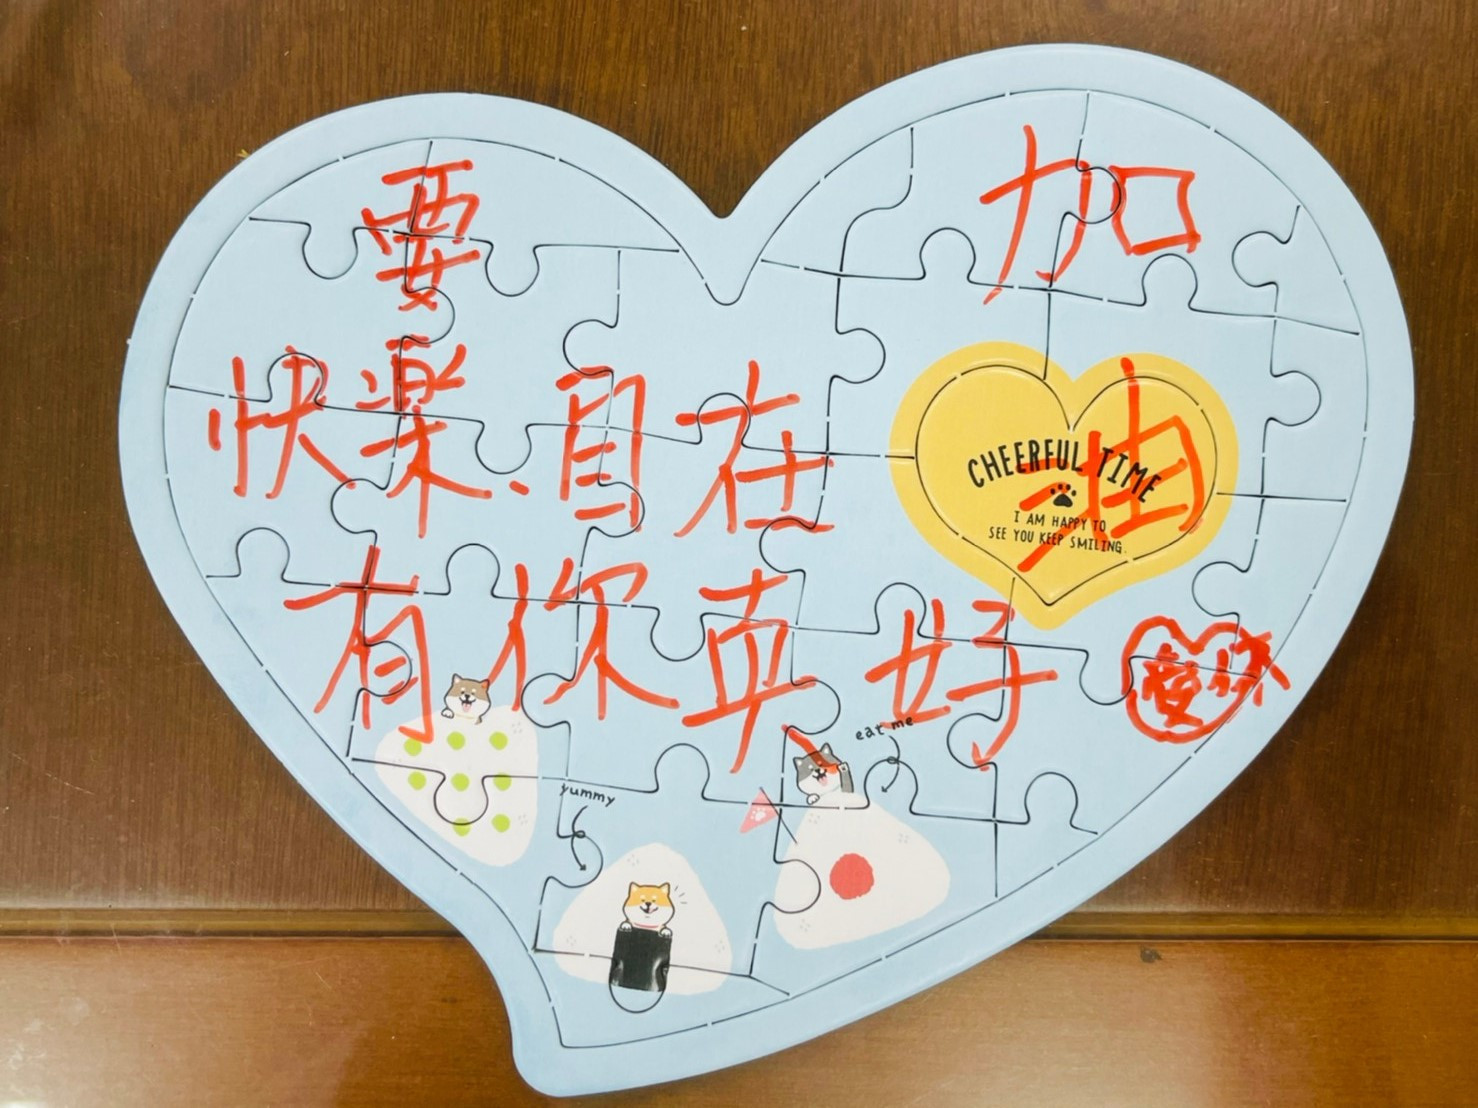 要
加
快樂、自在
油
CHEERFUL TIME
I AM HAPPY TO
SEE YOU KEEP SMILING.
有你真好
愛你
eat me
yummy